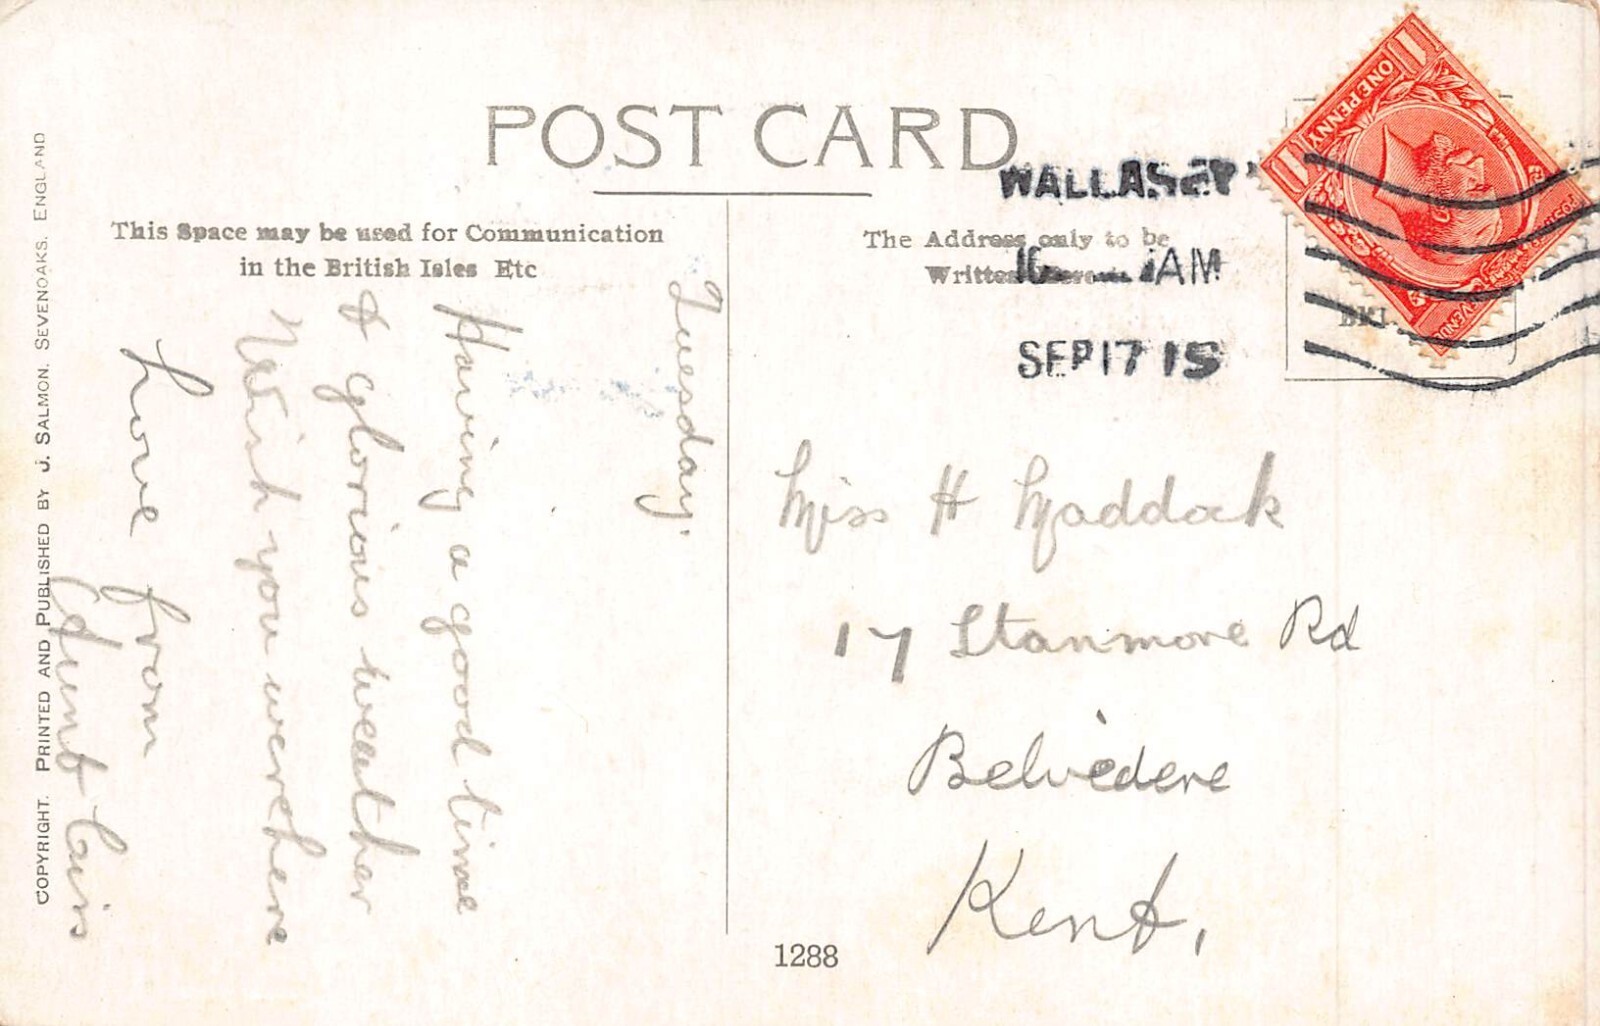 POST CARD
This Space may be used for Communication
in the British Isles Etc
The Address only to be
Written
WALLASEY
AM
SEP 17 15
ONE PENNY
1
1
Tuesday.
Having a good time
& glorious weather
Wish you were here
Love from
Miss H Maddock
17 Stanmore Rd
Belvedere
Kent,
1288
COPYRIGHT. PRINTED AND PUBLISHED BY J. SALMON. SEVENOAKS. ENGLAND